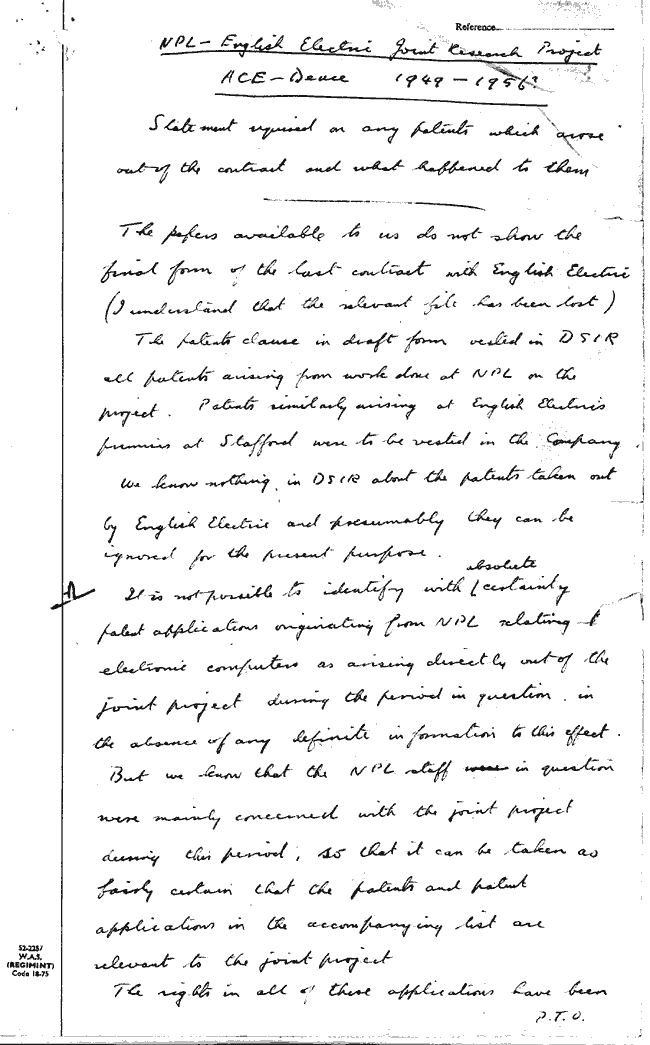 Reference
NPL - English Electric Joint Research Project
ACE - Deuce 1949 - 1956?
Statement required on any patents which arose
out of the contract and what happened to them
The papers available to us do not show the
final form of the last contract with English Electric
(I understand that the relevant file has been lost)
The patents clause in draft form vested in DSIR
all patents arising from work done at NPL on the
project. Patents similarly arising at English Electric's
premises at Stafford were to be vested in the Company.
We know nothing in DSIR about the patents taken out
by English Electric and presumably they can be
ignored for the present purpose.
absolute
It is not possible to identify with / certainty
patent applications originating from NPL relating to
electronic computers as arising directly out of the
joint project during the period in question, in
the absence of any definite information to this effect.
But we know that the NPL staff were in question
were mainly concerned with the joint project
during this period, so that it can be taken as
fairly certain that the patents and patent
applications in the accompanying list are
relevant to the joint project
The rights in all of these applications have been
P.T.O.
52-2257
W.A.S.
(REGIMINT)
Code 18-75